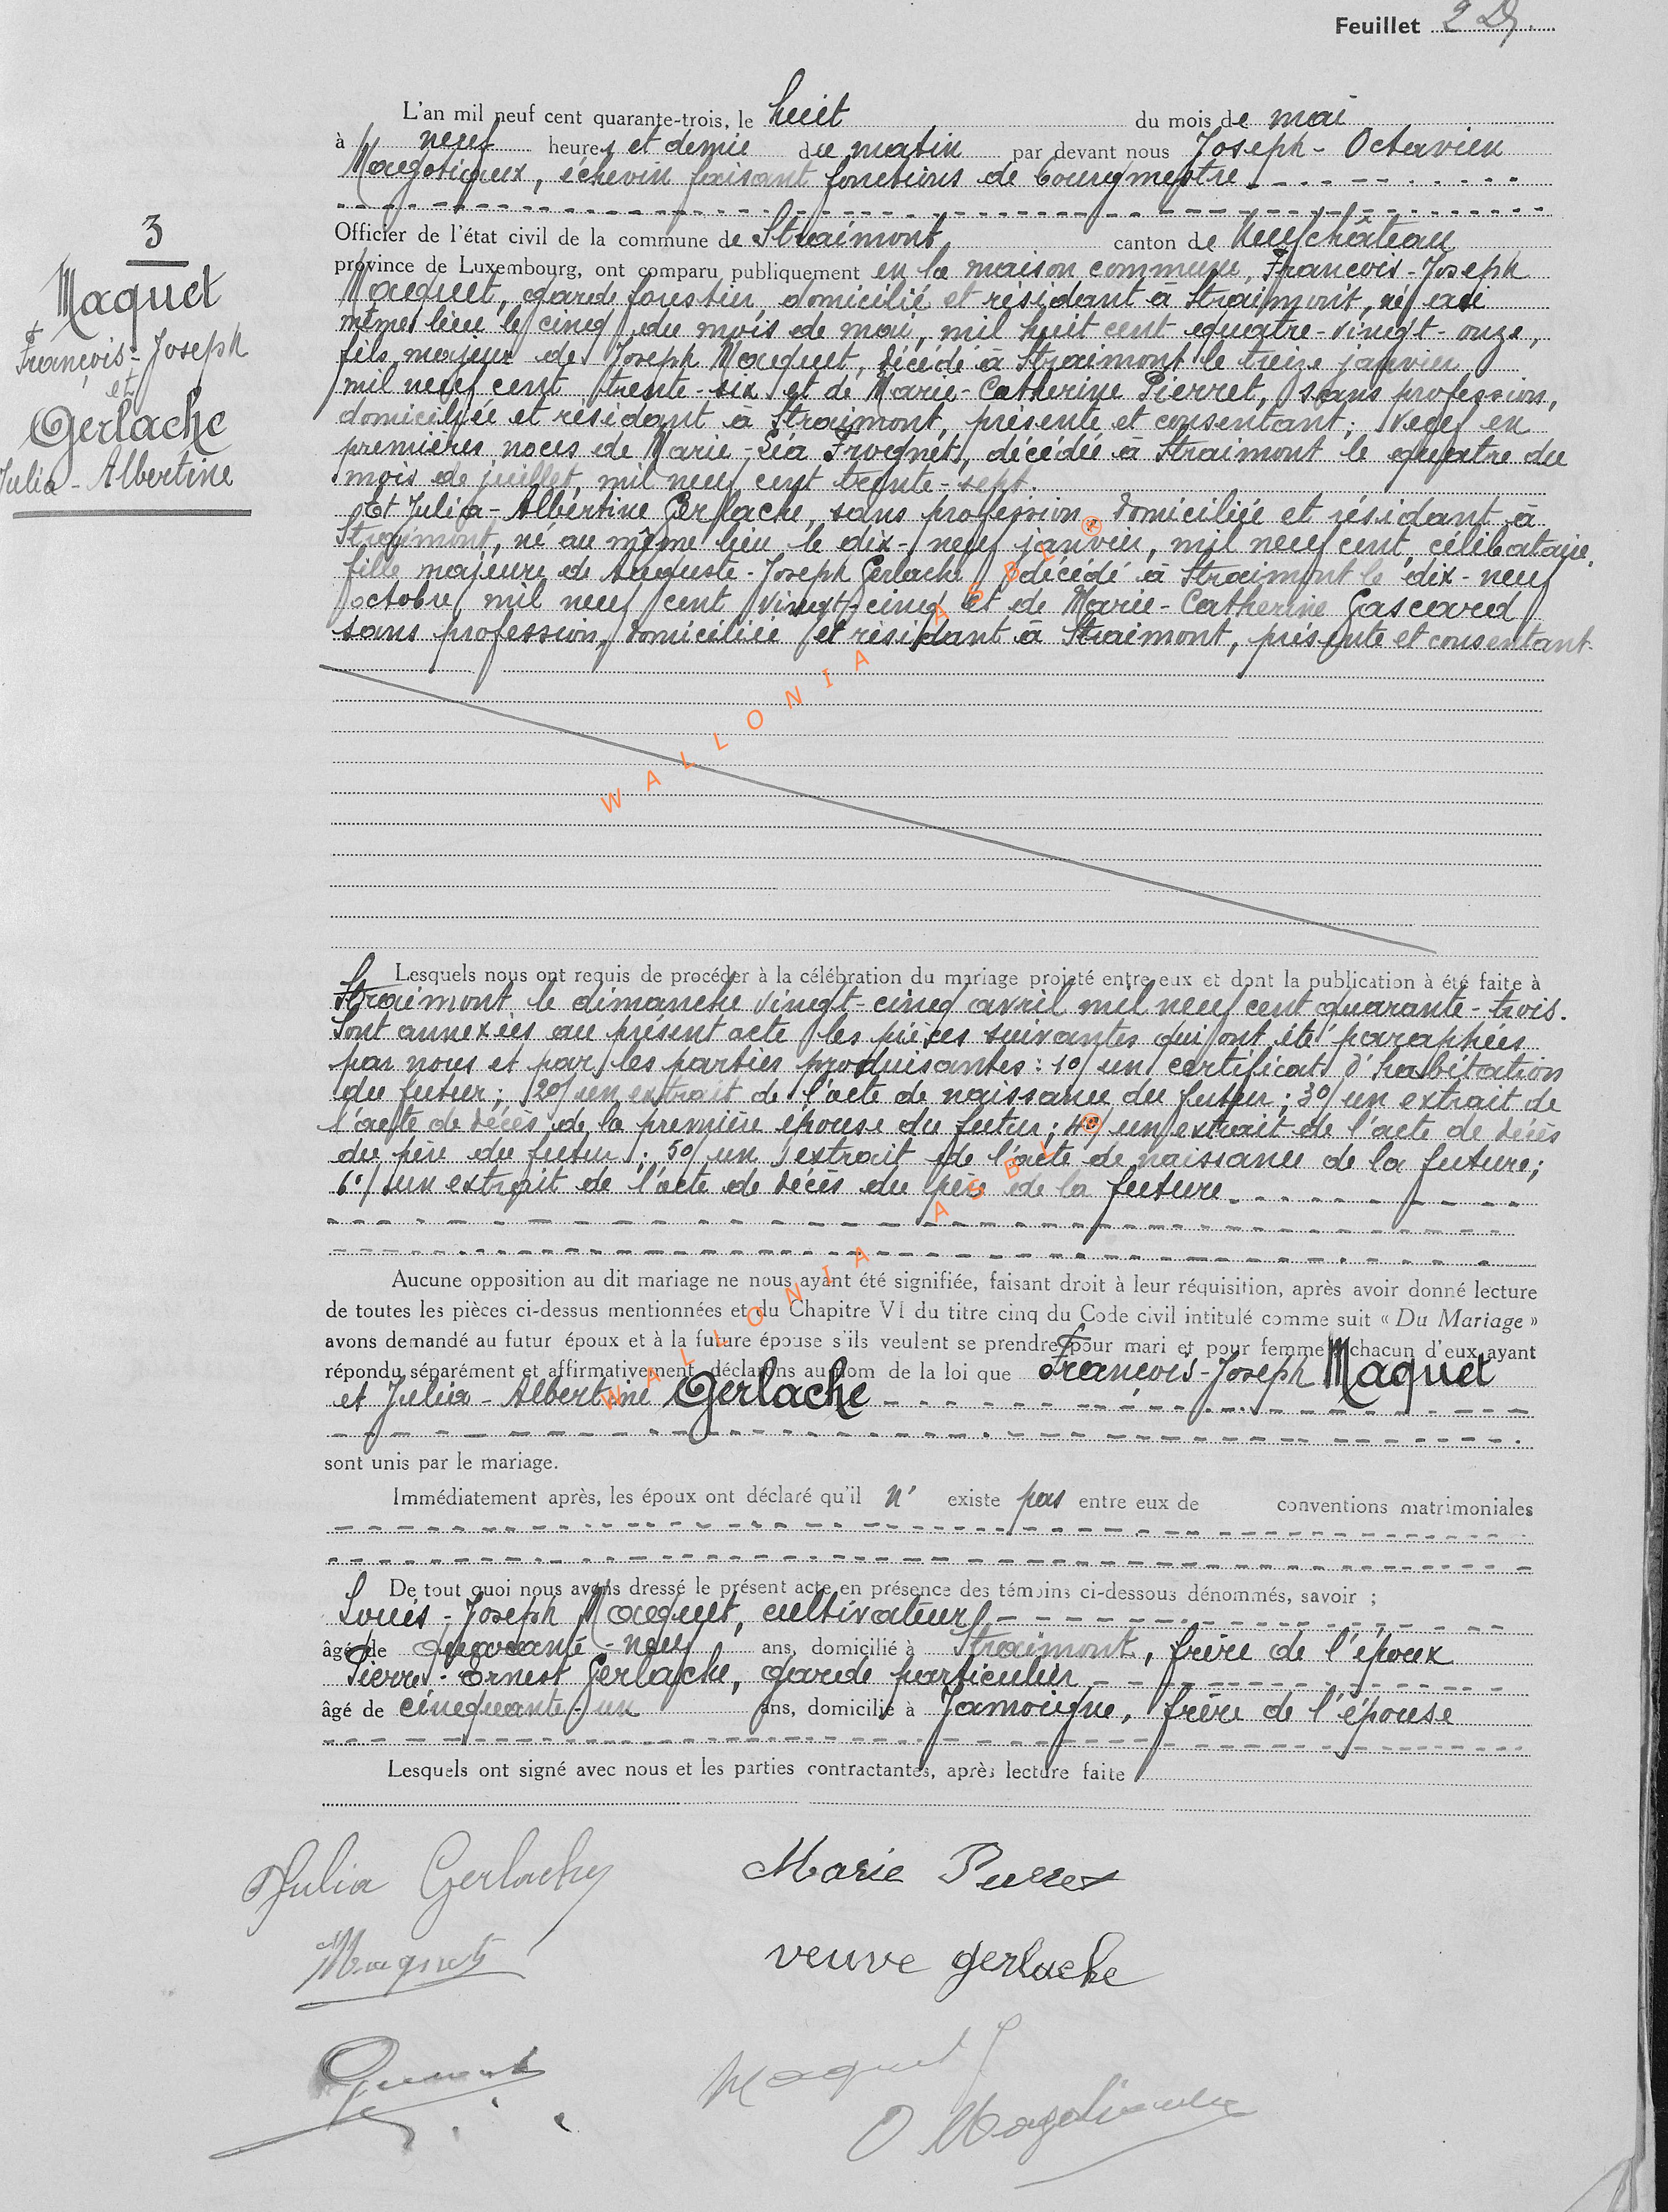 Feuillet 2
L'an mil neuf cent quarante-trois, le huit du mois de mai
à neuf heures et demie du matin par devant nous Joseph-Octavien
Magotiaux, échevin faisant fonctions de bourgmestre
Officier de l'état civil de la commune de Straimont canton de Neufchâteau
province de Luxembourg, ont comparu publiquement en la maison commune, François-Joseph
Maquet, garde forestier, domicilié et résidant à Straimont, né au
même lieu le cinq du mois de mai, mil huit cent quatre-vingt-onze,
fils majeur de Joseph Maquet, décédé à Straimont le treize janvier
mil neuf cent trente-six et de Marie-Catherine Pierret, sans profession,
domiciliée et résidant à Straimont, présente et consentant; veuf en
premières noces de Marie-Léa Frognet, décédée à Straimont le quatre du
mois de juillet, mil neuf cent trente-sept.
Et Julia-Albertine Gerlache, sans profession, domiciliée et résidant à
Straimont, né au même lieu le dix-neuf janvier, mil neuf cent, célibataire,
fille majeure de Auguste-Joseph Gerlache, décédé à Straimont le dix-neuf
octobre mil neuf cent vingt-cinq et de Marie-Catherine Gascard
sans profession, domiciliée et résidant à Straimont, présente et consentant.
3
Maquet
François-Joseph
et
Gerlache
Julia-Albertine
WALLONIA ASBL
Lesquels nous ont requis de procéder à la célébration du mariage projeté entre eux et dont la publication à été faite à
Straimont le dimanche vingt-cinq avril mil neuf cent quarante-trois.
Sont annexées au présent acte les pièces suivantes qui ont été paraphées
par nous et par les parties produisantes: 1°/ un certificat d'habitation
du futur; 2°/ un extrait de l'acte de naissance du futur; 3°/ un extrait de
l'acte de décès de la première épouse du futur; 4°/ un extrait de l'acte de décès
du père du futur; 5°/ un extrait de l'acte de naissance de la future;
6°/ un extrait de l'acte de décès du père de la future
WALLONIA ASBL
Aucune opposition au dit mariage ne nous ayant été signifiée, faisant droit à leur réquisition, après avoir donné lecture
de toutes les pièces ci-dessus mentionnées et du Chapitre VI du titre cinq du Code civil intitulé comme suit « Du Mariage »
avons demandé au futur époux et à la future épouse s'ils veulent se prendre pour mari et pour femme chacun d'eux ayant
répondu séparément et affirmativement déclarons au nom de la loi que François-Joseph Maquet
et Julia-Albertine Gerlache
sont unis par le mariage.
Immédiatement après, les époux ont déclaré qu'il n' existe pas entre eux de conventions matrimoniales
De tout quoi nous avons dressé le présent acte en présence des témoins ci-dessous dénommés, savoir ;
Louis-Joseph Maquet, cultivateur
âgé de quarante-neuf ans, domicilié à Straimont, frère de l'époux
Pierre-Ernest Gerlache, garde particulier
âgé de cinquante-un ans, domicilié à Jamoigne, frère de l'épouse
Lesquels ont signé avec nous et les parties contractantes, après lecture faite
Julia Gerlache
Marie Pierret
Maquet
veuve gerlache
Maquet J
O Magotiaux